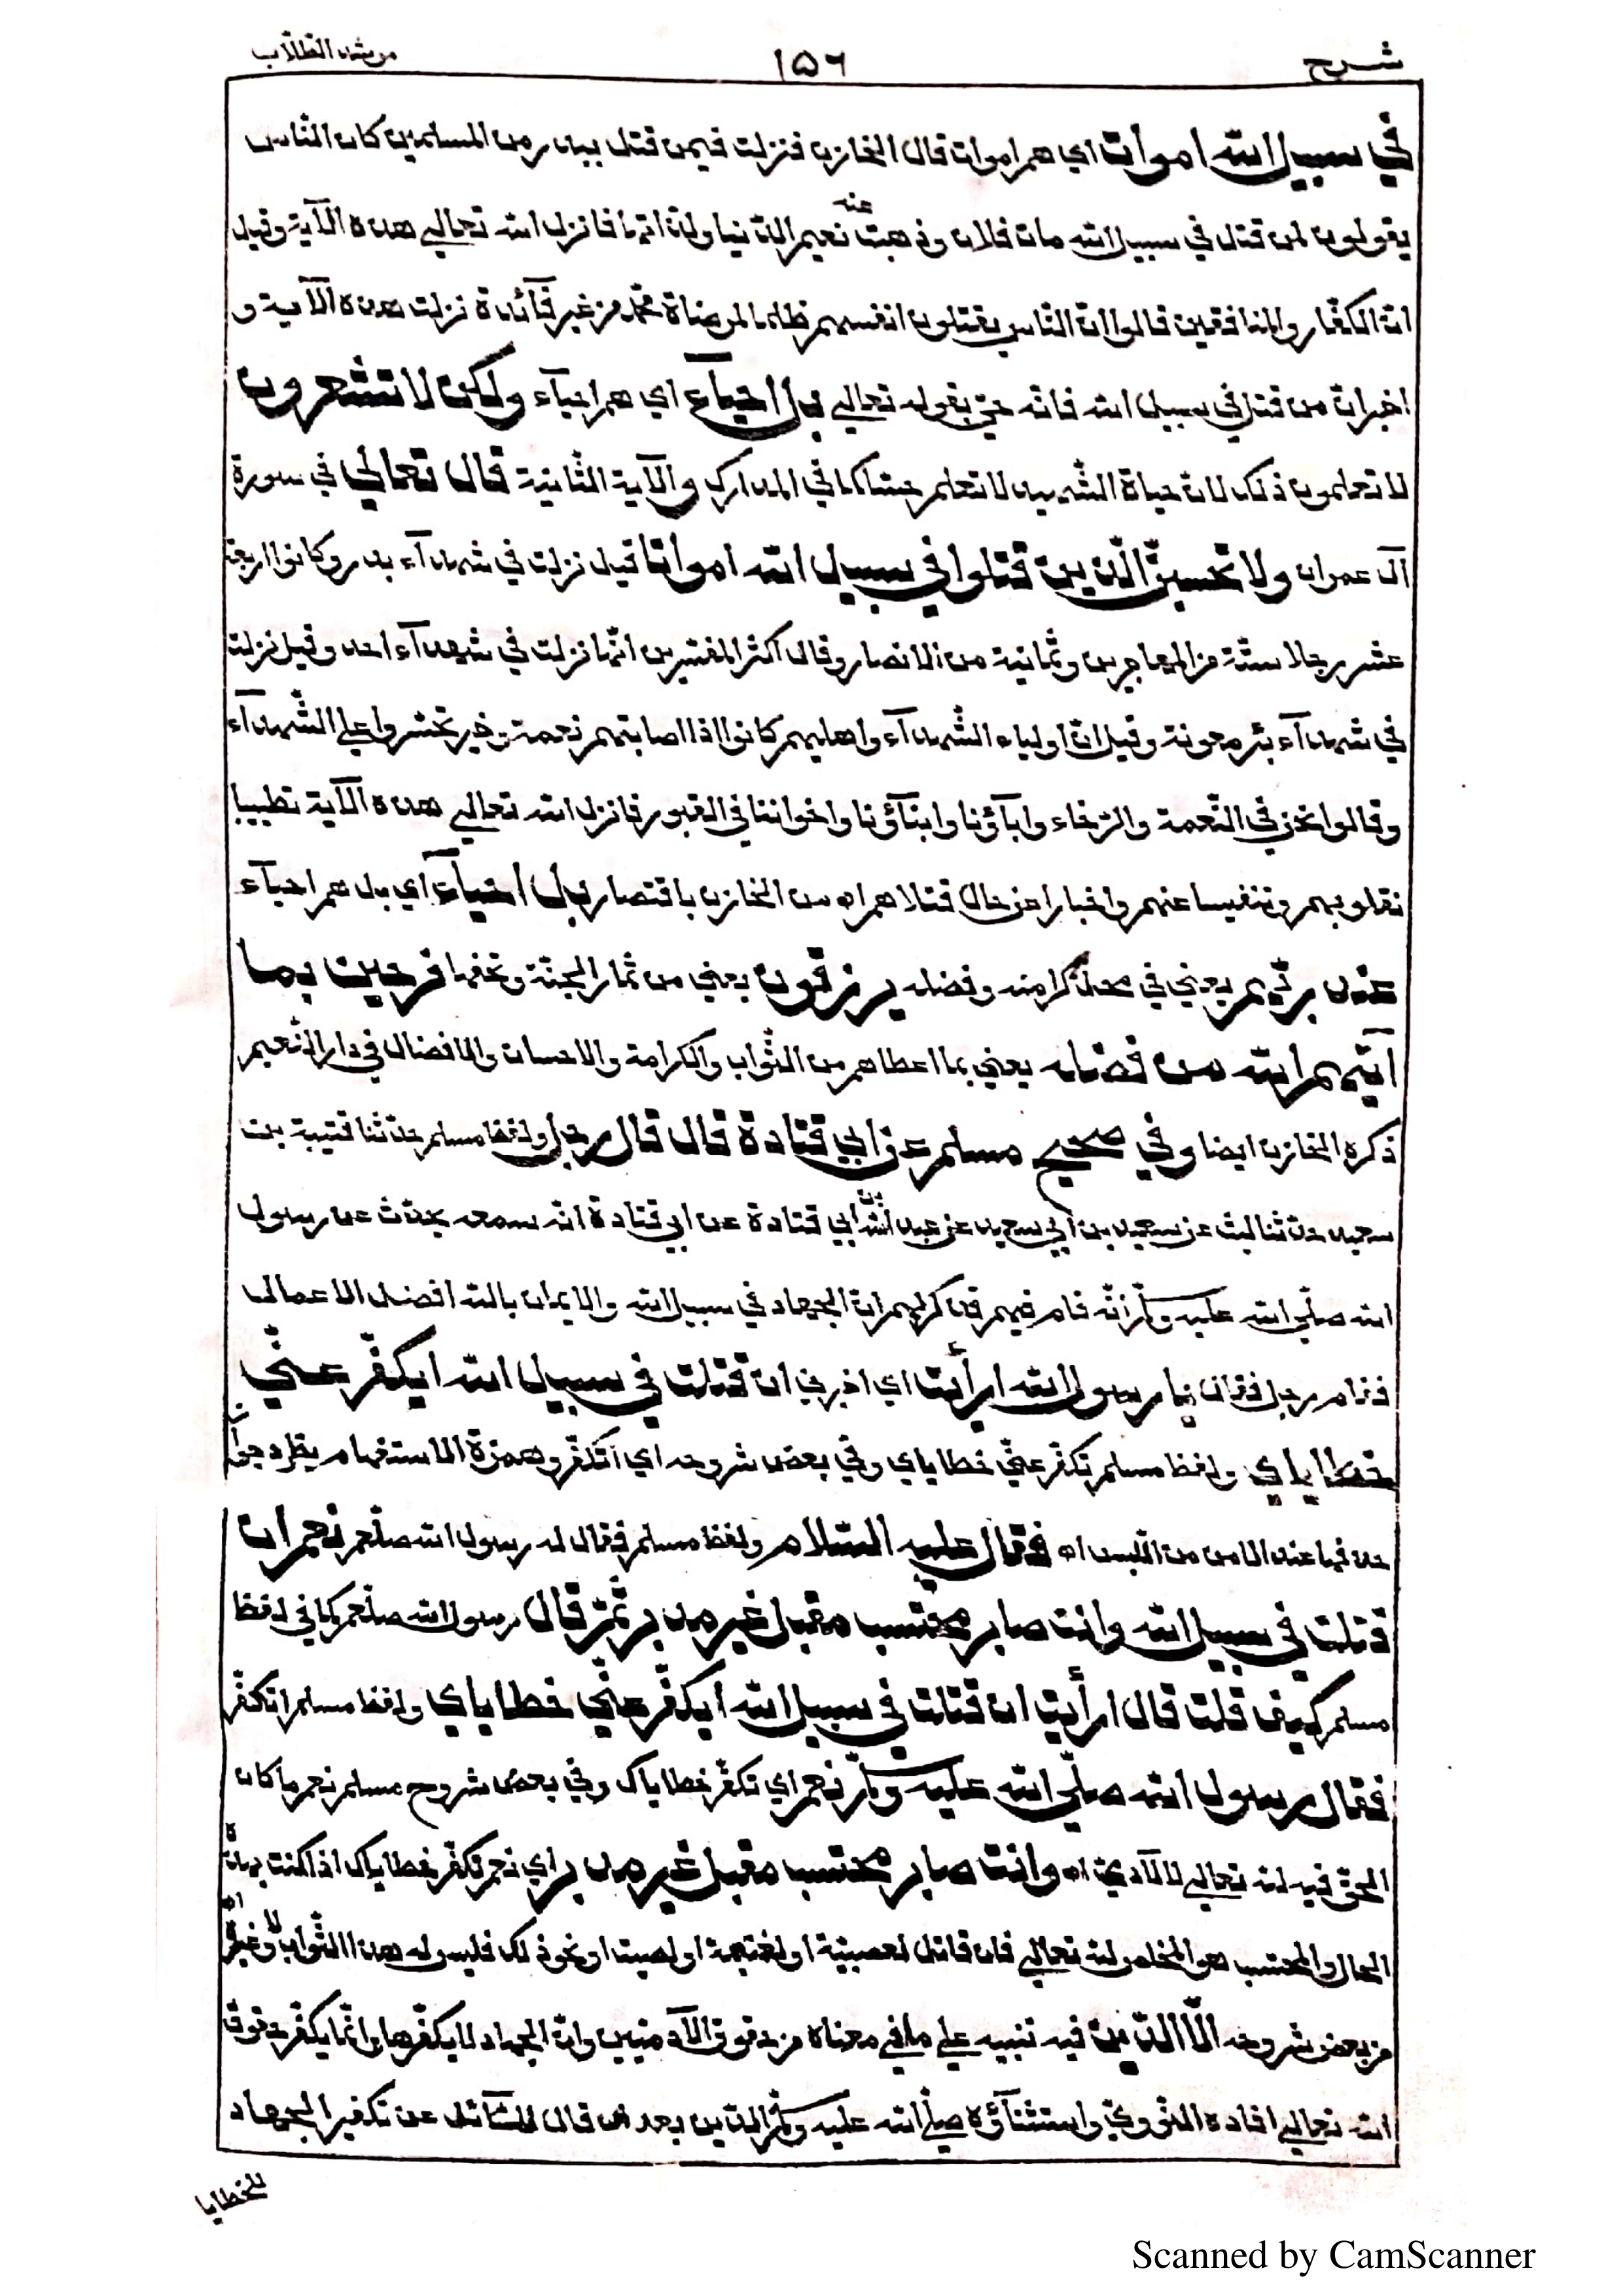 شرح ١٥٦ مرشد الطلاب
في سبيل الله اموات اي هم اموات قال الخازن فنزلت فيمن قتل ببدر من المسلمين كان الناس
يقولون لمن قتل في سبيل الله مات فلان وذهبت عنه نعيم الدنيا ولذاتها فانزل الله تعالي هذه الآية وقيل
ان الكفار والمنافقين قالوا ان الناس يقتلون انفسهم ظلما لمرضاة محمد من غير فآئدة نزلت هذه الآية و
اخبر ان من قتل في سبيل الله فانه حي بقوله تعالي بل احيآء اي هم احيآء ولكن لا تشعرون
لا تعلمون ذلك لان حياة الشهيد لا تعلم حسّا كما في المدارك والآية الثانية قال تعالي في سورة
آل عمران ولا تحسبنّ الّذين قتلوا في سبيل الله امواتا قيل نزلت في شهدآء بدر وكانوا اربعة
عشر رجلا ستّة من المهاجرين وثمانية من الانصار وقال اكثر المفسّرين انّها نزلت في شهدآء احد وقيل نزلت
في شهدآء بئر معونة وقيل انّ اولياء الشّهدآء واهليهم كانوا اذا اصابتهم نعمة وخير تحسّروا علي الشّهدآء
وقالوا نحن في النّعمة والرّخاء وآبآؤنا وابنآؤنا واخواننا في القبور فانزل الله تعالي هذه الآية تطييبا
لقلوبهم وتنفيسا عنهم واخبارا عن حال قتلاهم اه من الخازن باقتصار بل احيآء اي بل هم احيآء
عند ربّهم يعني في محلّ كرامته وفضله يرزقون يعني من ثمار الجنّة وتحفها فرحين بما
آتيهم الله من فضله يعني بما اعطاهم من الثّواب والكرامة والاحسان والافضال في دار النّعيم
ذكره الخازن ايضا وفي صحيح مسلم عن ابي قتادة قال قال رجل ولفظ مسلم حدّثنا قتيبة بن
سعيد حدّثنا ليث عن سعيد بن ابي سعيد عن عبد الله بن ابي قتادة عن ابي قتادة انّه سمعه يحدّث عن رسول
الله صلّي الله عليه وسلّم انّه قام فيهم فذكر لهم انّ الجهاد في سبيل الله والايمان بالله افضل الاعمال
فقام رجل فقال يا رسول الله ارأيت اي اخبرني ان قتلت في سبيل الله ايكفّر عنّي
خطاياي ولفظ مسلم تكفّر عنّي خطاياي وفي بعض شروحه اي اتكفّر وهمزة الاستفهام يطرد جواز
حذفها عند الامن من اللّبس اه فقال عليه السّلام ولفظ مسلم فقال له رسول الله صلعم نعم ان
قتلت في سبيل الله وانت صابر محتسب مقبل غير مدبر ثمّ قال رسول الله صلعم كما في لفظ
مسلم كيف قلت قال ارأيت ان قتلت في سبيل الله ايكفّر عنّي خطاياي ولفظ مسلم اتكفّر
فقال رسول الله صلّي الله عليه وسلّم نعم اي تكفّر خطاياك وفي بعض شروح مسلم نعم ما كان
الحقّ فيه لله تعالي لا لآدميّ اه وانت صابر محتسب مقبل غير مدبر اي نعم تكفّر خطاياك اذا كنت بهذه
الحال والمحتسب هو المخلص لله تعالي فان قاتل لعصبيّة او لغنيمة او لصيت او نحو ذلك فليس له هذا الثّواب ولا غيره اه
من بعض شروحه الّا الدّين فيه تنبيه علي ما في معناه من حقوق الآدميين وانّ الجهاد لا يكفّرها وانّما يكفّر حقوق
الله تعالي افاده النّوويّ واستثنآؤه صلّي الله عليه وسلّم الدّين بعد ان قال للسّآئل عن تكفير الجهاد
للخطايا
Scanned by CamScanner